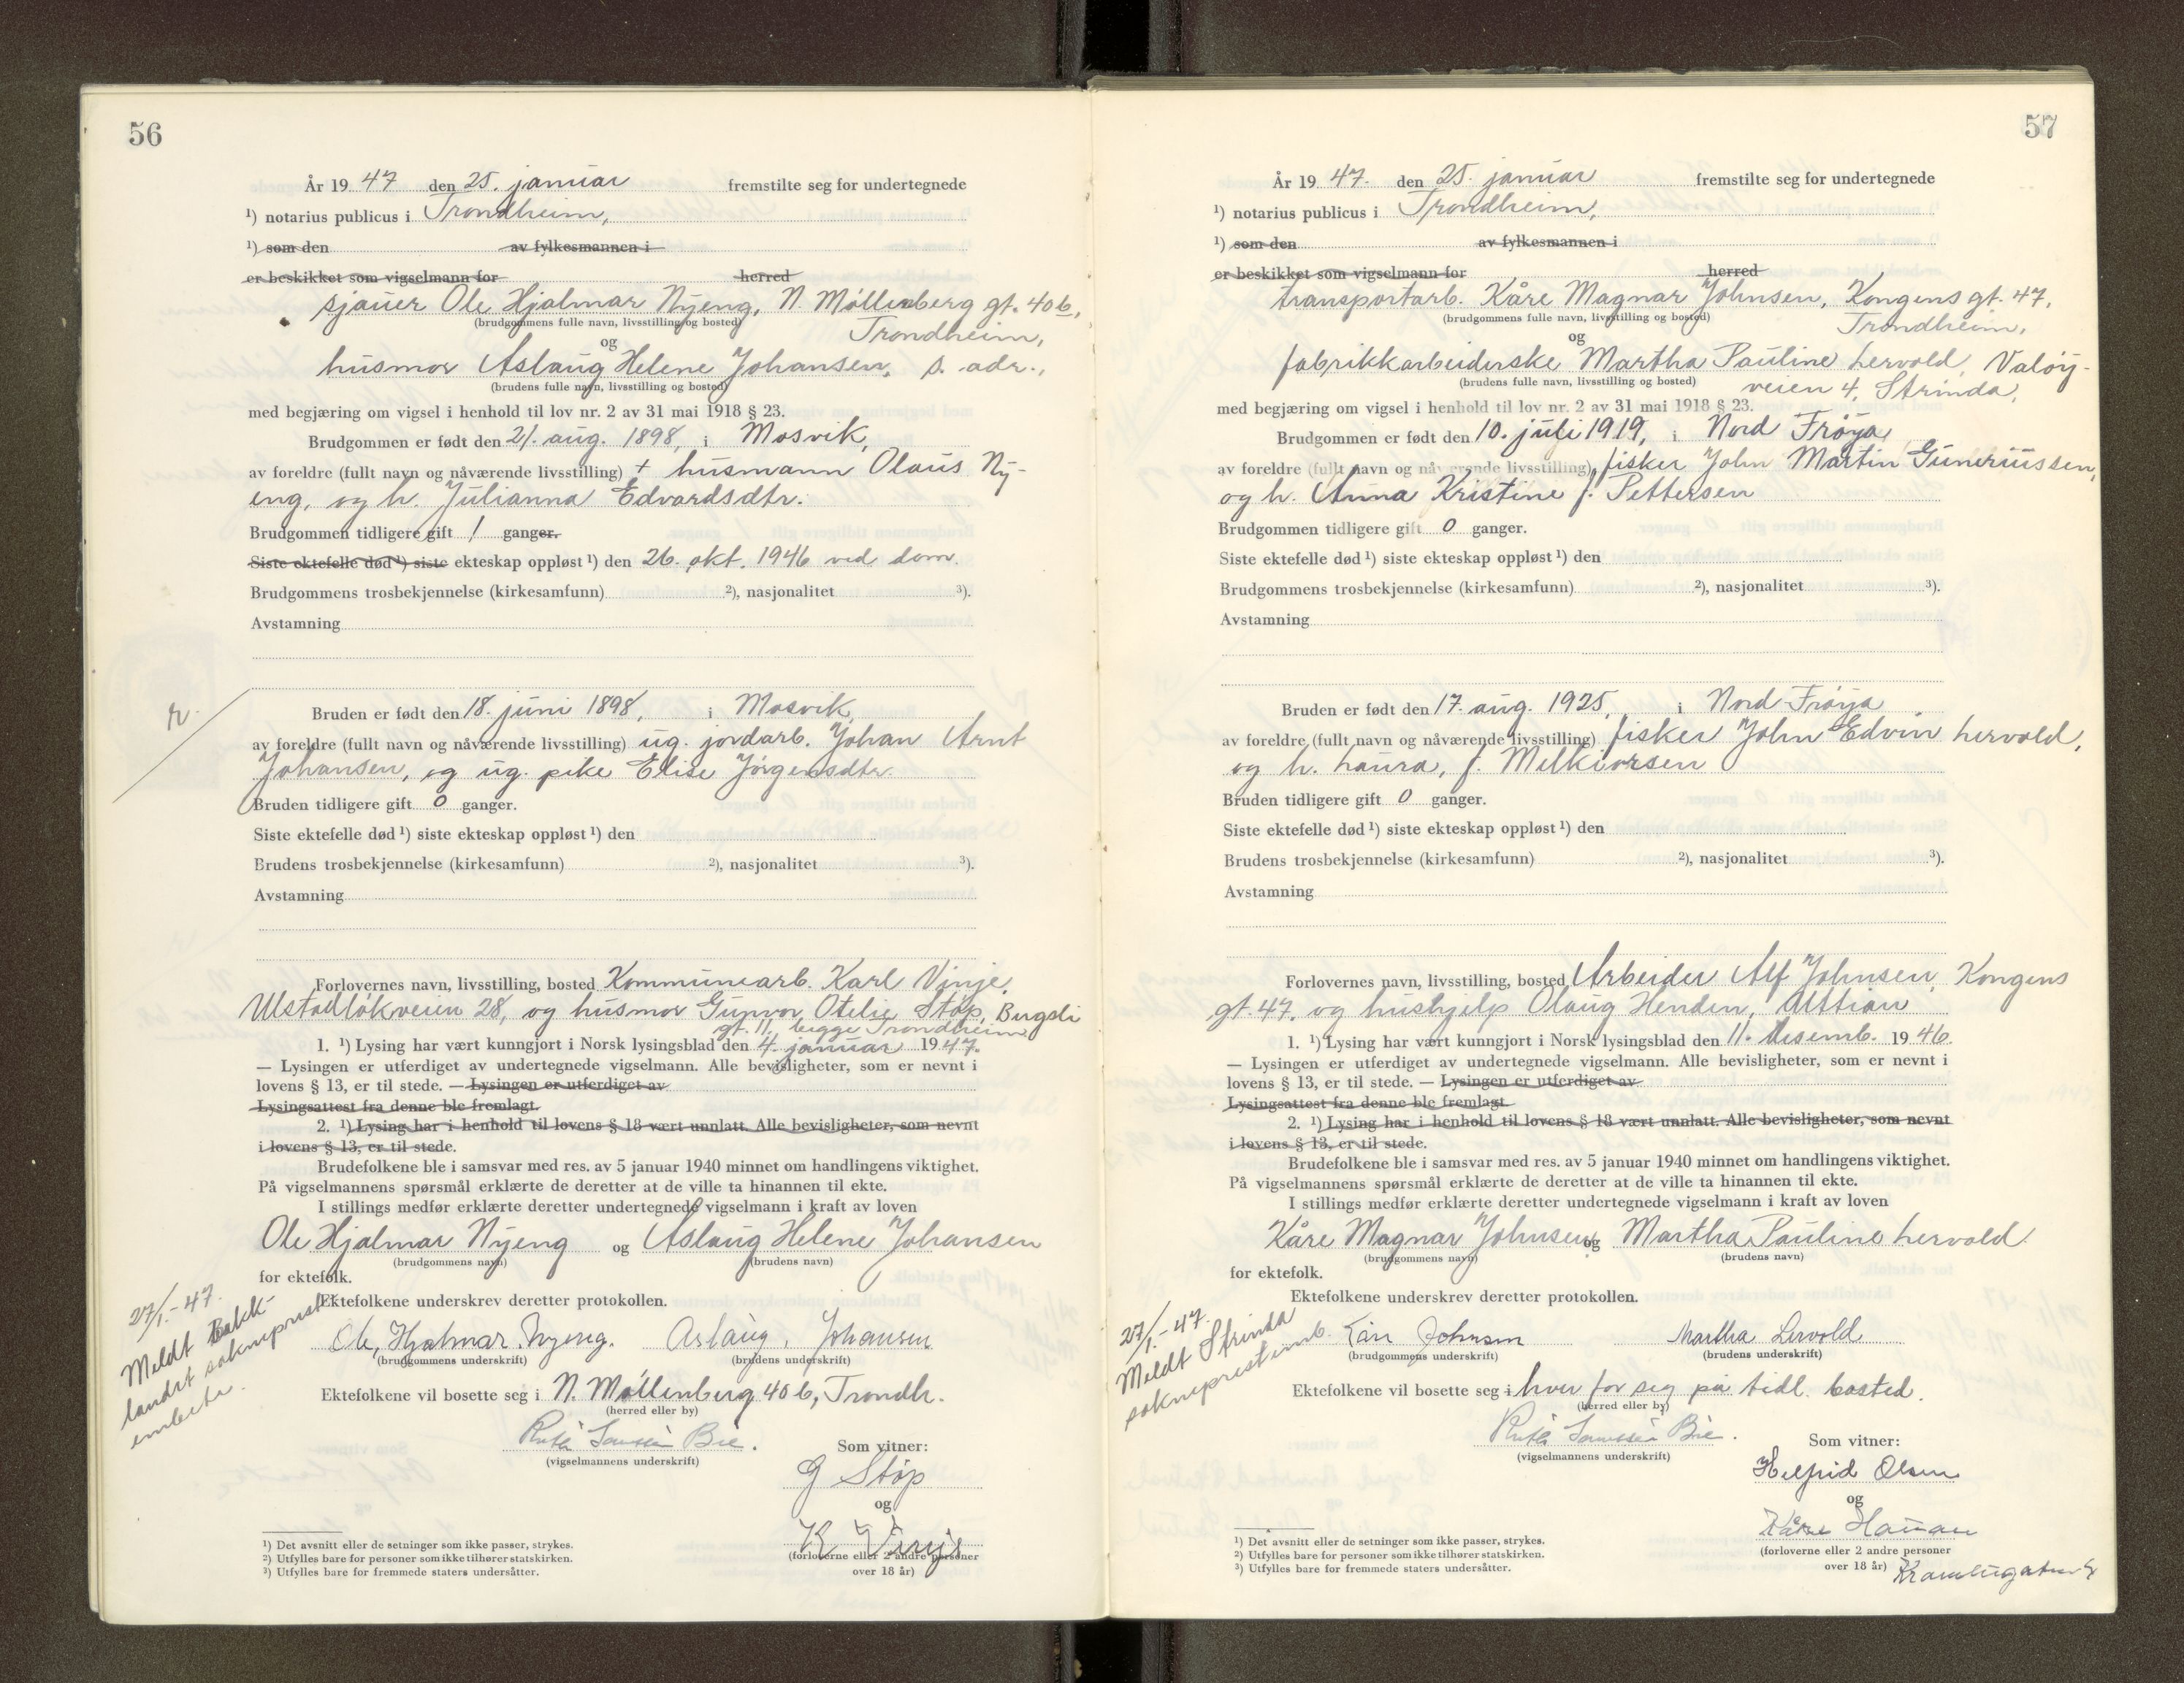 56
År 1947 den 25. januar fremstilte seg for undertegnede
¹) notarius publicus i Trondheim,
¹) som den av fylkesmannen i
er beskikket som vigselmann for herred
sjauer Ole Hjalmar Nyeng, N. Møllenberg gt. 40 b,
(brudgommens fulle navn, livsstilling og bosted)
Trondheim,
og
husmor Aslaug Helene Johansen, s. adr.,
(brudens fulle navn, livsstilling og bosted)
med begjæring om vigsel i henhold til lov nr. 2 av 31 mai 1918 § 23.
Brudgommen er født den 21. aug. 1898, i Mosvik,
av foreldre (fullt navn og nåværende livsstilling) + husmann Olaus Ny-
eng, og h. Julianna Edvardsdtr.
Brudgommen tidligere gift 1 ganger.
Siste ektefelle død ¹) siste ekteskap oppløst ¹) den 26. okt. 1946 ved dom.
Brudgommens trosbekjennelse (kirkesamfunn) ²), nasjonalitet ³).
Avstamning
Bruden er født den 18. juni 1898, i Mosvik,
av foreldre (fullt navn og nåværende livsstilling) ug. jordarb. Johan Arnt
Johansen, og ug. pike Elise Jørgensdtr.
Bruden tidligere gift 0 ganger.
Siste ektefelle død ¹) siste ekteskap oppløst ¹) den
Brudens trosbekjennelse (kirkesamfunn) ²), nasjonalitet ³).
Avstamning
Forlovernes navn, livsstilling, bosted Kommunearb. Karl Vinje,
Ulstadløkveien 28, og husmor Gunvor Otelie Støp, Bugsli
gt. 11, begge Trondheim
1. ¹) Lysing har vært kunngjort i Norsk lysingsblad den 4. januar 1947.
— Lysingen er utferdiget av undertegnede vigselmann. Alle bevisligheter, som er nevnt i
lovens § 13, er til stede. — Lysingen er utferdiget av
Lysingsattest fra denne ble fremlagt.
2. ¹) Lysing har i henhold til lovens § 18 vært unnlatt. Alle bevisligheter, som nevnt
i lovens § 13, er til stede.
Brudefolkene ble i samsvar med res. av 5 januar 1940 minnet om handlingens viktighet.
På vigselmannens spørsmål erklærte de deretter at de ville ta hinannen til ekte.
I stillings medfør erklærte deretter undertegnede vigselmann i kraft av loven
Ole Hjalmar Nyeng og Aslaug Helene Johansen
(brudgommens navn) (brudens navn)
for ektefolk.
27/1.-47.
Meldt Bakk-
landet sokneprest-
embete.
Ektefolkene underskrev deretter protokollen.
Ole, Hjalmar. Nyeng. Aslaug, Johansen
(brudgommens underskrift) (brudens underskrift)
Ektefolkene vil bosette seg i N. Møllenberg 40 b, Trondh.
(herred eller by)
Bie.
(vigselmannens underskrift)
Som vitner:
G Støp
og
K Vinje
(forloverne eller 2 andre personer
over 18 år)
¹) Det avsnitt eller de setninger som ikke passer, strykes.
²) Utfylles bare for personer som ikke tilhører statskirken.
³) Utfylles bare for fremmede staters undersåtter.
57
År 1947. den 25. januar fremstilte seg for undertegnede
¹) notarius publicus i Trondheim,
¹) som den av fylkesmannen i
er beskikket som vigselmann for herred
transportarb. Kåre Magnar Johnsen, Kongens gt. 47,
(brudgommens fulle navn, livsstilling og bosted)
Trondheim,
og
fabrikkarbeiderske Martha Pauline Lervold, Valøy-
(brudens fulle navn, livsstilling og bosted)
veien 4, Strinda,
med begjæring om vigsel i henhold til lov nr. 2 av 31 mai 1918 § 23.
Brudgommen er født den 10. juli 1919, i Nord Frøya,
av foreldre (fullt navn og nåværende livsstilling) fisker John Martin Guneriussen,
og h. Anna Kristine f. Pettersen
Brudgommen tidligere gift 0 ganger.
Siste ektefelle død ¹) siste ekteskap oppløst ¹) den
Brudgommens trosbekjennelse (kirkesamfunn) ²), nasjonalitet ³).
Avstamning
Bruden er født den 17. aug. 1925, i Nord-Frøya
av foreldre (fullt navn og nåværende livsstilling) fisker John Edvin Lervold,
og h. Laura, f. Melkiorsen
Bruden tidligere gift 0 ganger.
Siste ektefelle død ¹) siste ekteskap oppløst ¹) den
Brudens trosbekjennelse (kirkesamfunn) ²), nasjonalitet ³).
Avstamning
Forlovernes navn, livsstilling, bosted Arbeider Alf Johnsen, Kongens
gt. 47, og hushjelp Olaug Henden, Uttian
1. ¹) Lysing har vært kunngjort i Norsk lysingsblad den 11. desemb. 1946.
— Lysingen er utferdiget av undertegnede vigselmann. Alle bevisligheter, som er nevnt i
lovens § 13, er til stede. — Lysingen er utferdiget av
Lysingsattest fra denne ble fremlagt.
2. ¹) Lysing har i henhold til lovens § 18 vært unnlatt. Alle bevisligheter, som nevnt
i lovens § 13, er til stede.
Brudefolkene ble i samsvar med res. av 5 januar 1940 minnet om handlingens viktighet.
På vigselmannens spørsmål erklærte de deretter at de ville ta hinannen til ekte.
I stillings medfør erklærte deretter undertegnede vigselmann i kraft av loven
Kåre Magnar Johnsen og Martha Pauline Lervold
(brudgommens navn) (brudens navn)
for ektefolk.
27/1.-47.
Meldt Strinda
sokneprestemb.
Ektefolkene underskrev deretter protokollen.
Kåre Johnsen Martha Lervold
(brudgommens underskrift) (brudens underskrift)
Ektefolkene vil bosette seg i hver for seg på tidl. bosted.
(herred eller by)
Bie.
(vigselmannens underskrift)
Som vitner:
Helfrid Olsen
og
Kåre Hauan
(forloverne eller 2 andre personer
over 18 år)
¹) Det avsnitt eller de setninger som ikke passer, strykes.
²) Utfylles bare for personer som ikke tilhører statskirken.
³) Utfylles bare for fremmede staters undersåtter.